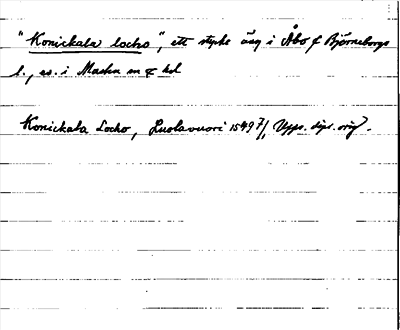 "Konickala locho", ett stycke äng i Åbo o Björneborgs
l., es. i Masku sn & hd
Konickala Locho, Luolavuori 1549 7/1 Upps. dipl. orig.